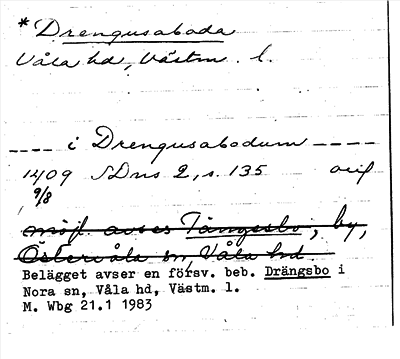 * Drengusaboda
Våla hd, Västm. l.
---- i Drengusabodum ----
1409 SDns 2, s. 135 orig
9/8
möjl. avses Tängsbo, by,
Östervåla sn, Våla hd
Belägget avser en försv. beb. Drängsbo i
Nora sn, Våla hd, Västm. l.
M. Wbg 21.1 1983